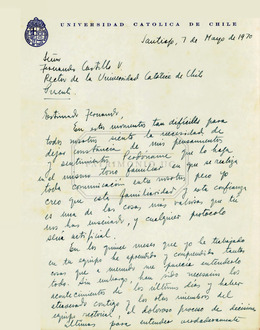 UNIVERSIDAD CATOLICA DE CHILE
Santiago, 7 de Mayo de 1970
Señor
Fernando Castillo V
Rector de la Universidad Católica de Chile
Presente
Estimado Fernando,
En estos momentos tan difíciles para
todos nosotros siento la necesidad de
dejar constancia de mis pensamientos
y sentimientos. Perdóname que lo haga
en el mismo tono familiar en que se realiza
toda comunicación entre nosotros; pero yo
creo que esta familiaridad y esta confianza
es una de las cosas más valiosas que tú
nos has enseñado, y cualquier protocolo
sería artificial.
En los pocos meses que yo he trabajado
en tu equipo he aprendido y comprendido tantas
cosas que a menudo me parecía entenderlo
todo. Sin embargo han sido necesarios los
acontecimientos de los últimos días y haber
atravesado contigo y los otros miembros del
equipo rectorial, el doloroso proceso de decisiones
últimas para entender verdaderamente